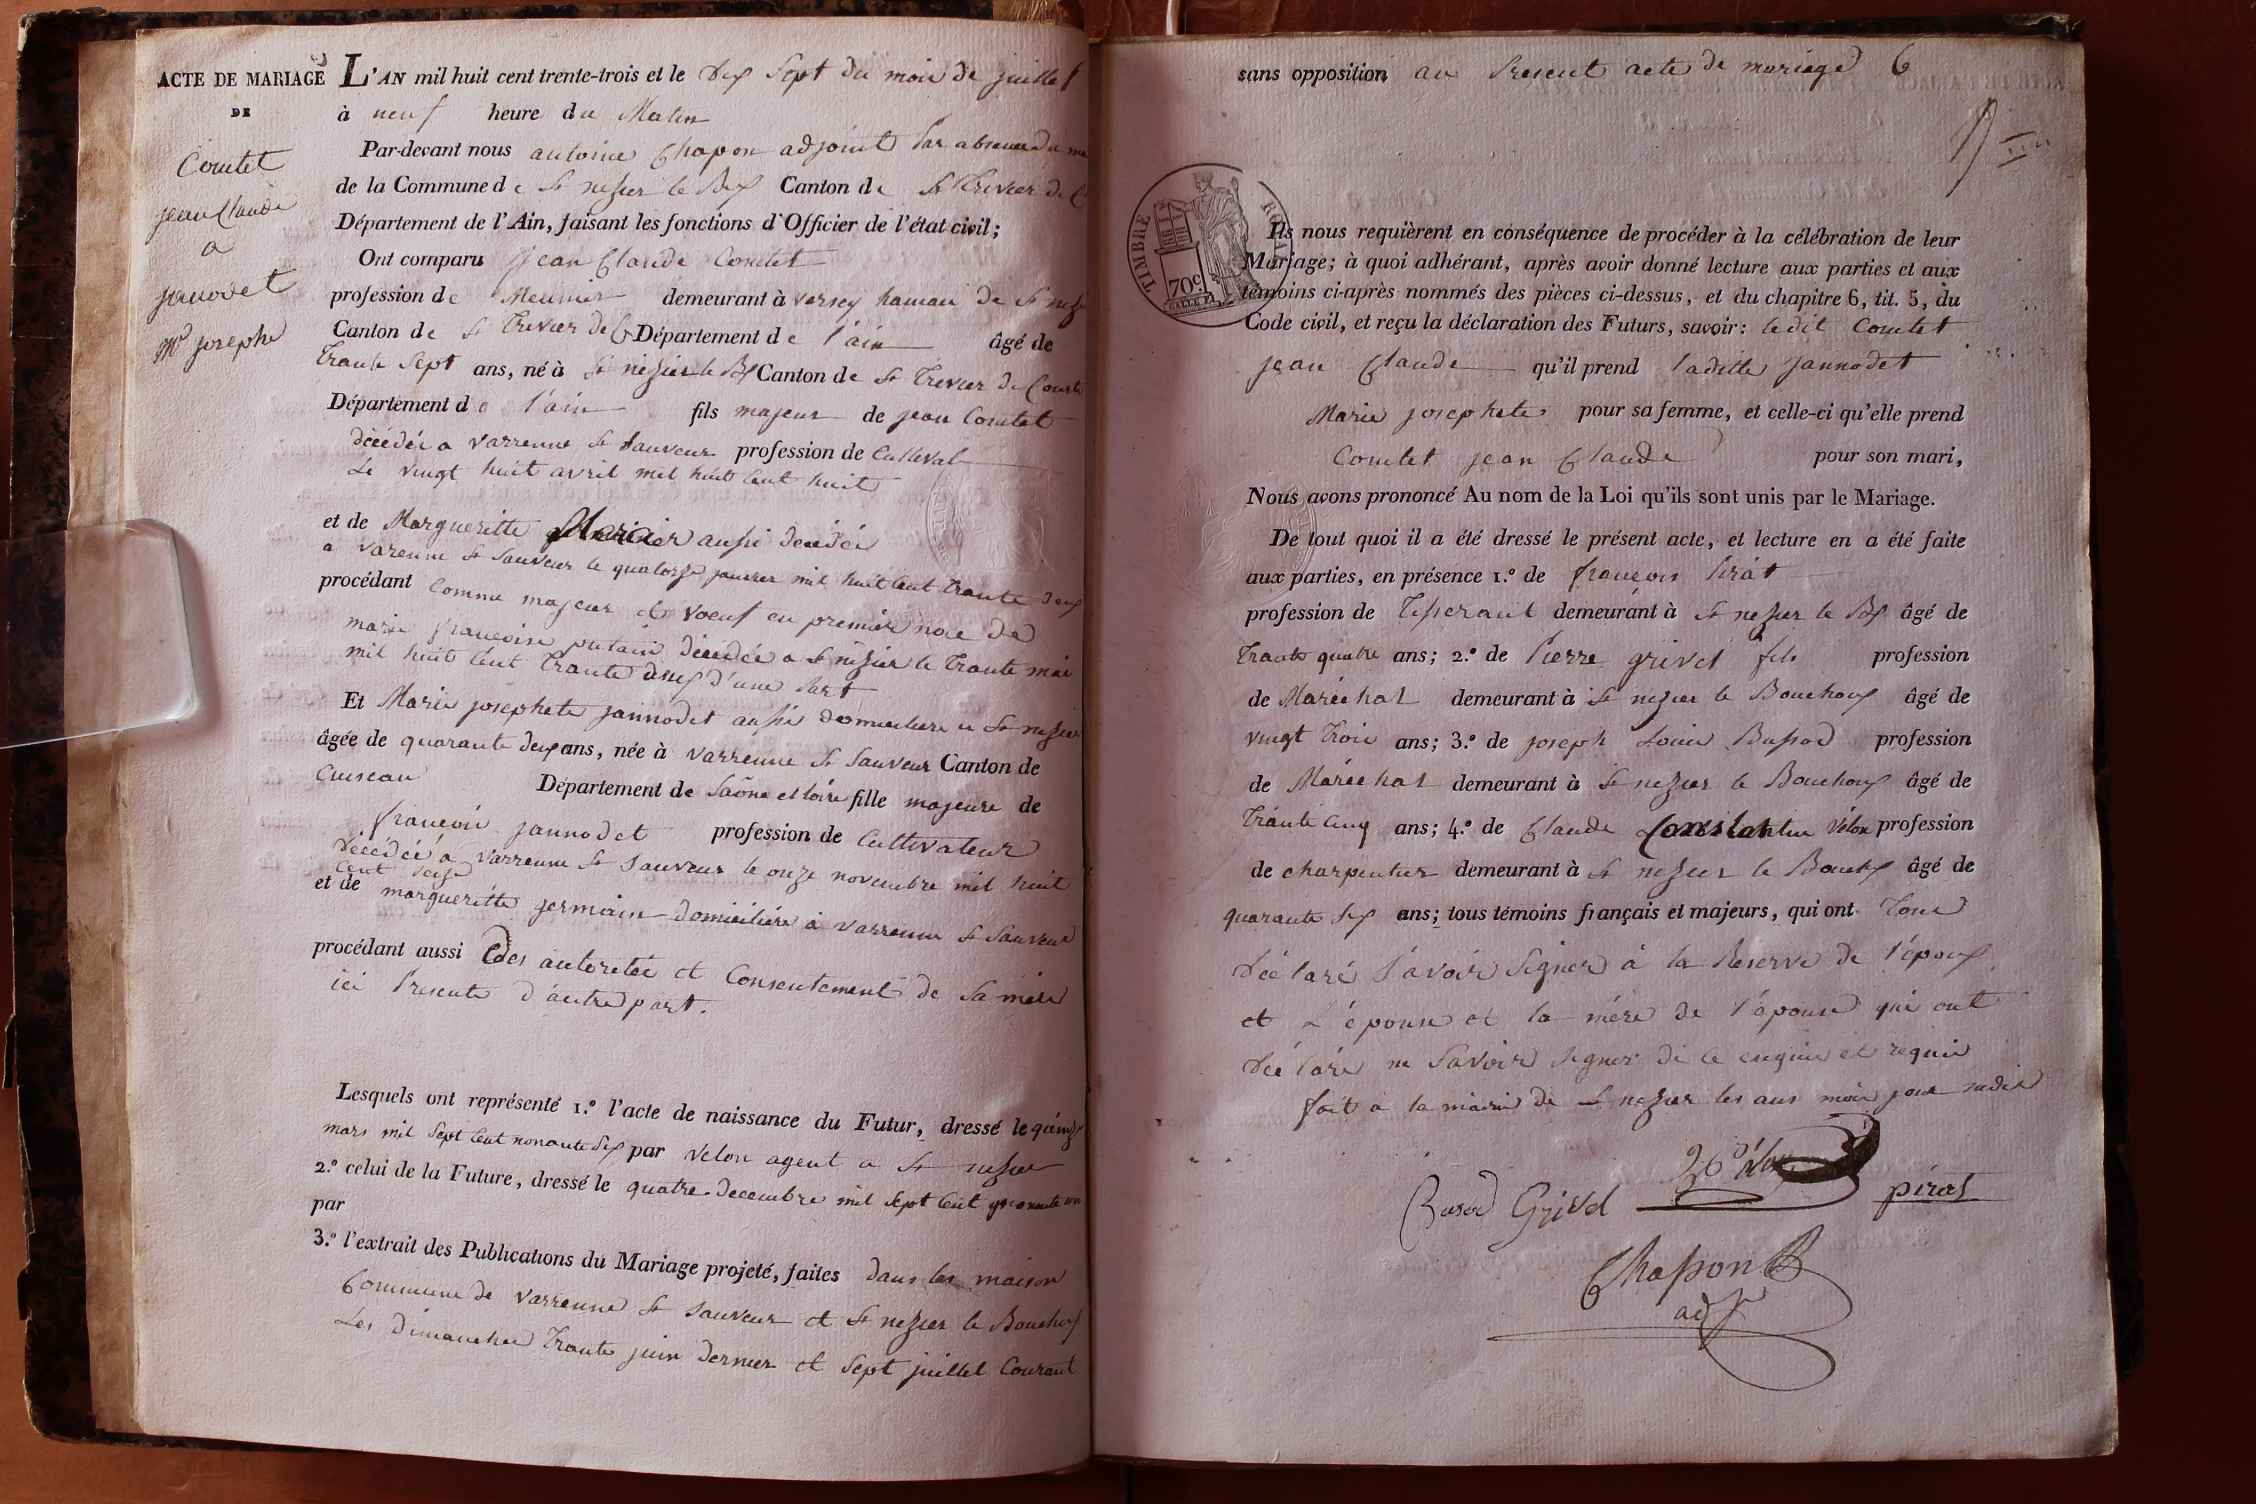 ACTE DE MARIAGE
DE
Comtet
jean Claude
a
janodet
Mie josephe
L'AN mil huit cent trente-trois et le dix Sept du mois de juillet
à neuf heure du Matin
Par-devant nous antoine Chapon adjoint par absence du
de la Commune de St nezier le Bx Canton de St Trivier de C
Département de l'Ain, faisant les fonctions d'Officier de l'état civil;
Ont comparu Jean Claude Comtet
profession de Meunier demeurant à versey hamau de St nezi
Canton de St Trivier de C Département de l'ain âgé de
Trante Sept ans, né à St nezier le Bx Canton de St Trivier de Courte
Département de l'ain fils majeur de jean Comtet
décédéé a varrenne St Sauveur profession de Cultivat
Le vingt huit avril mil huit Cent huit
et de Margueritte aussi décédéé
a varenne St Sauveur le quatorze janvier mil huit Cent Trante deux
procédant Comme majeur et voeuf en premier noce de
marie francoise putain décédéé a St nezier le Trante mai
mil huit Cent Trante deux d'une part
Et Marie josephete jannodet aussi domiciliere a St nezier
âgée de quarante deux ans, née à varrenne St Sauveur Canton de
Cuiseau Département de Saône et loire fille majeure de
francois jannodet profession de Cultivateur
décédéé a varrenne St Sauveur le onze novembre mil huit
Cent Seize
et de margueritte germain domiciliére a varrenne St Sauveur
procédant aussi des autoritée et Consentement de Sa mère
ici Presente d'autre part.
Lesquels ont représenté 1.º l'acte de naissance du Futur, dressé le quinze
mars mil Sept Cent nonante Six par velon agent a St nezier
2.º celui de la Future, dressé le quatre decembre mil Sept Cent nonante un
par
3.º l'extrait des Publications du Mariage projeté, faites dans les maison
Commune de varrenne St Sauveur et St nezier le Bouchoux
Les dimanches Trante juin dernier et Sept juillet Courant
sans opposition au Present acte de mariage 6
TIMBRE ROYAL
70c.
Ils nous requièrent en conséquence de procéder à la célébration de leur
Mariage; à quoi adhérant, après avoir donné lecture aux parties et aux
témoins ci-après nommés des pièces ci-dessus, et du chapitre 6, tit. 5, du
Code civil, et reçu la déclaration des Futurs, savoir: ledit Comtet
jean Claude qu'il prend laditte jannodet
Marie josephete pour sa femme, et celle-ci qu'elle prend
Comtet jean Claude pour son mari,
Nous avons prononcé Au nom de la Loi qu'ils sont unis par le Mariage.
De tout quoi il a été dressé le présent acte, et lecture en a été faite
aux parties, en présence 1.º de françois Pirat
profession de Tisserant demeurant à St nezier le Bx âgé de
Trante quatre ans; 2.º de Pierre grivel fils profession
de Maréchal demeurant à St nezier le Bouchoux âgé de
vingt Trois ans; 3.º de joseph Louis Bussod profession
de Maréchal demeurant à St nezier le Bouchoux âgé de
Trante Cinq ans; 4.º de Claude Constantin vélon profession
de charpentier demeurant à St nezier le Bouchx âgé de
quarante Six ans; tous témoins français et majeurs, qui ont Tous
déclaré Savoir Signer à la Reserve de l'époux
et L'épouse et la mére de l'épouse qui ont
déclaré ne Savoir Signer de ce enquis et requis
fait a la mairie de St nezier les ans mois jour susdit
Busod Grivel Vélon pirat
Chapon
adj